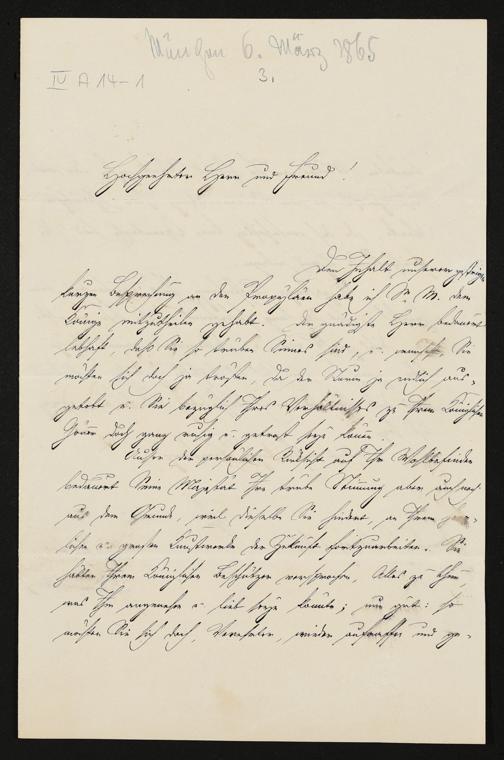 München 6. März 1865
IV A 14-1
3.
Hochgeehrter Herr und Freund!
Den Inhalt unserer gestrigen
kurzen Besprechung an den Propyläen habe ich Sr. M. dem
Könige mitzutheilen gehabt. Der gnädigste Herr bedauert
lebhaft, daß Sie so trüben Sinnes sind, u. wünscht, Sie
möchten sich doch ja trösten, da der Sturm ja endlich aus-
getobt u. Sie bezüglich Ihres Verhältnisses zu Ihrem Königlichen
Gönner doch ganz ruhig u. getrost seyn können.
Außer der persönlichen Rücksicht auf Ihr Wohlbefinden
bedauert Seine Majestät Ihre trübe Stimmung aber auch noch
aus dem Grunde, weil dieselbe Sie hindert, an Ihrem
u. großen Kunstwerke der Zukunft fortzuarbeiten. Sie
hätten Ihrem Königlichen Beschützer versprochen, Alles zu thun,
was Ihm angenehm u. lieb seyn könnte; nun gut: so
möchten Sie sich doch, Verehrter, wieder aufraffen und ge-